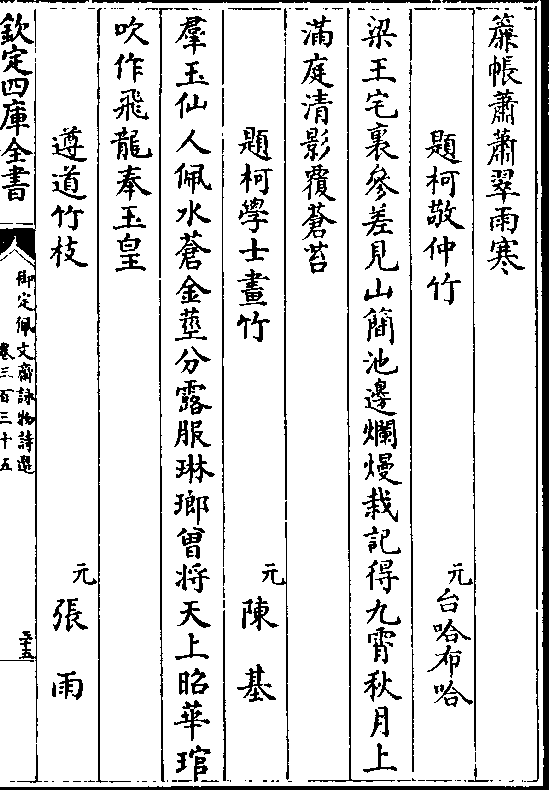 簾帳蕭蕭翠雨寒
題柯敬仲竹
元台哈布哈
梁王宅裏參差見山簡池邊爛熳栽記得九霄秋月上
滿庭清影覆蒼苔
題柯學士畫竹
元陳基
羣玉仙人佩水蒼金莖分露服琳瑯曾將天上昭華琯
吹作飛龍奉玉皇
遵道竹枝
元張雨
欽定四庫全書
御定佩文齋詠物詩選
卷三百三十五
三十五